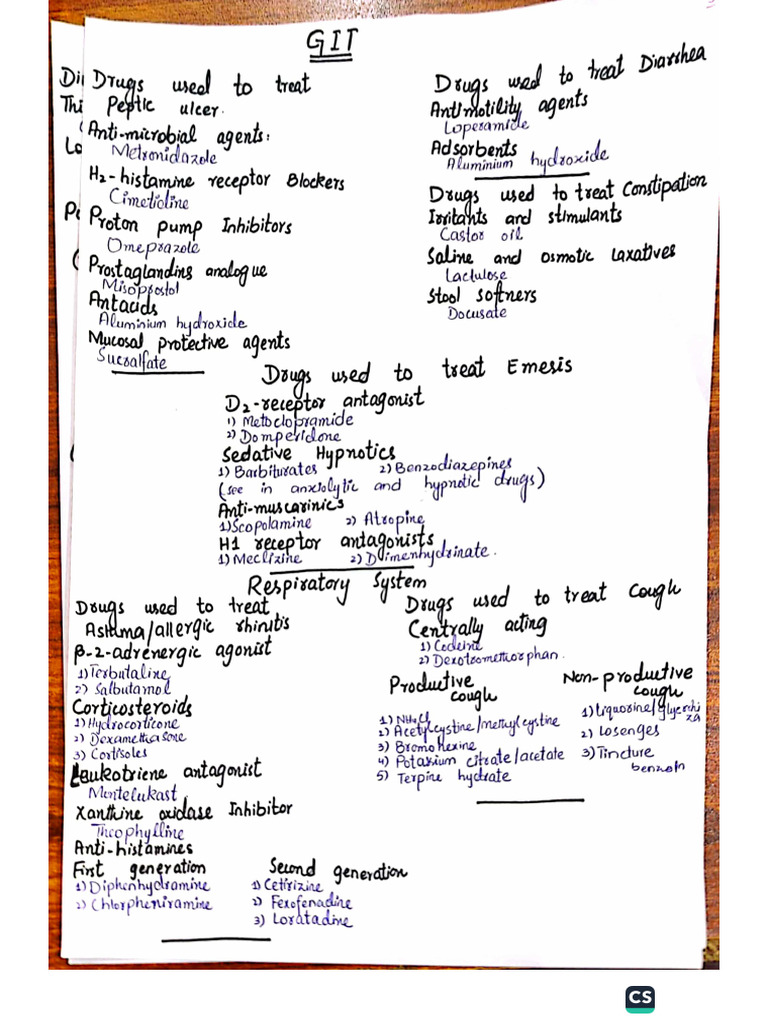 GIT
Drugs used to treat
Peptic ulcer.
Anti-microbial agents:
Metronidazole
H2-histamine receptor Blockers
Cimetidine
Proton pump Inhibitors
Omeprazole
Prostaglandins analogue
Misoprostol
Antacids
Aluminium hydroxide
Mucosal protective agents
Sucralfate
Drugs used to treat Diarrhea
Antimotility agents
Loperamide
Adsorbents
Aluminium hydroxide
Drugs used to treat Constipation
Irritants and stimulants
Castor oil
Saline and osmotic laxatives
Lactulose
Stool softners
Docusate
Drugs used to treat Emesis
D2-receptor antagonist
1) Metoclopramide
2) Domperidone
Sedative Hypnotics
1) Barbiturates 2) Benzodiazepines
(see in anxiolytic and hypnotic drugs)
Anti-muscarinics
1) Scopolamine 2) Atropine
H1 receptor antagonists
1) Meclizine 2) Dimenhydrinate.
Respiratory System
Drugs used to treat
Asthma/allergic rhinitis
β-2-adrenergic agonist
1) Terbutaline
2) Salbutamol
Corticosteroids
1) Hydrocorticone
2) Dexamethasone
3) Cortisoles
Leukotriene antagonist
Montelukast
Xanthine oxidase Inhibitor
Theophylline
Anti-histamines
First generation
1) Diphenhydramine
2) Chlorpheniramine
Second generation
1) Cetirizine
2) Fexofenadine
3) Loratadine
Drugs used to treat Cough
Centrally acting
1) Codeine
2) Dexotromethorphan.
Productive
cough
1) NH4Cl
2) Acetylcystine/methylcystine
3) Bromohexine
4) Potassium citrate/acetate
5) Terpine hydrate
Non-productive
cough
1) Liquorine/glycerrhi
za
2) Losenges
3) Tincture
benzoin
Di
Thi
Lo
CS